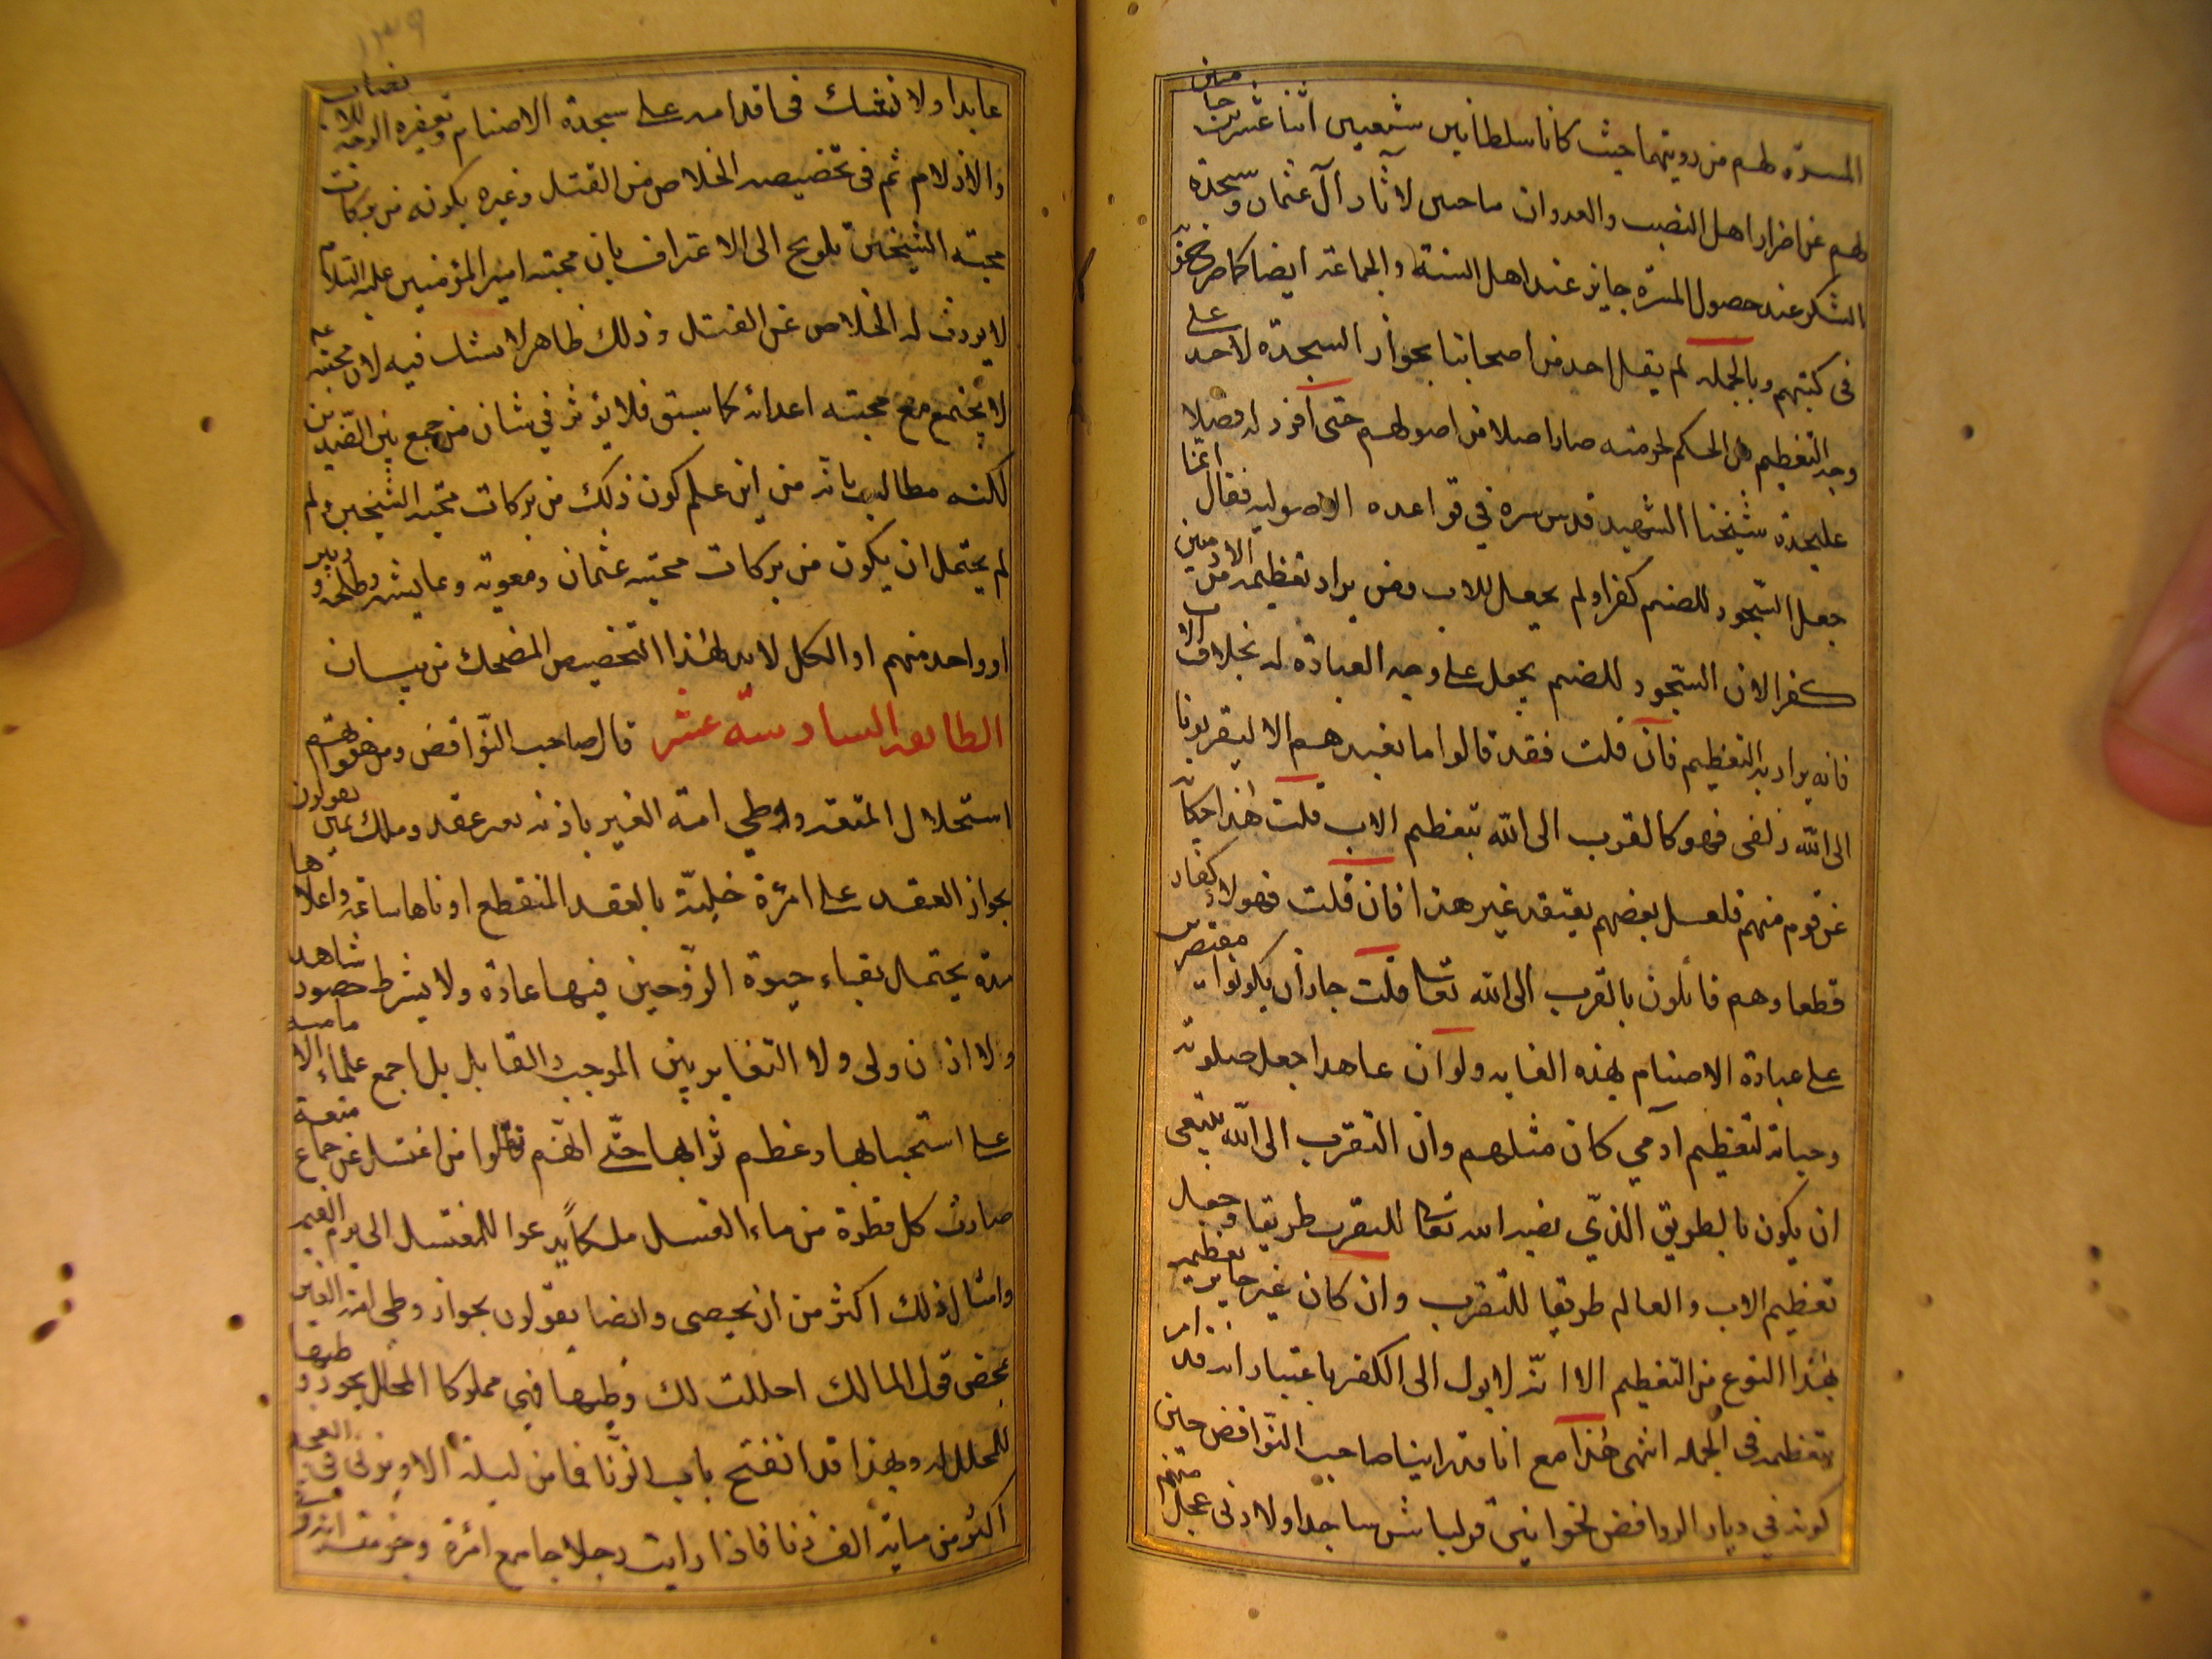 المسرّة لهم من رويتهما حيث كانا سلطانين شيعيين اثنا عشريين حامين
لهم عن اضرار اهل النصب والعدوان ماحين لآثار آل عثمان وسجدة
الشكر عند حصول المسرّة جايز عند اهل السنة والجماعة ايضا كما صرّح
فى كتبهم وبالجمله لم يقل احد من اصحابنا بجواز السجدة لاحد على
وجه التعظيم بل الحكم لحرمته صار اصلا من اصولهم حتى افرد له فصلا
عليحدة شيخنا الشهيد قدس سره في قواعده الاصوليه فقال انما
جعل السّجود للصنم كفرا ولم يجعل للاب ومن يراد تعظيمه من الادميين
كفرا لان السّجود للصنم يجعل على وجه العبادة له بخلاف الاب
فانه يراد به التعظيم فان قلت فقد قالوا ما نعبدهم الا ليقربونا
الى الله زلفى فهو كالتقرب الى الله بتعظيم الاب قلت هذا حكاية
عن قوم منهم فلعل بعضهم يعتقد غير هذا فان قلت فهولاء كفار
قطعا وهم قائلون بالتقرب الى الله تعالى قلت جاز ان يكونوا مقتصرين
على عبادة الاصنام بهذه الغايه ولو ان عاهدا جعل صلوته
وحياته لتعظيم آدمي كان مثلهم وان التقرب الى الله ينبغي
ان يكون بالطريق الذّي نصبه الله تعالى للتقرب طريقا وجعل
تعظيم الاب والعالم طريقا للتقرب وان كان غير جايز تعظيمه
بهذا النوع من التعظيم الا انّه لا يول الى الكفر باعتبار انه قد امر
بتعظيمه فى الجمله انتهى هذا مع انا قد راينا صاحب النّواقض حين
كونه في ديار الروافض لخوانين قزلباش ساجدا ولادنى عجل منهم
عابدا ولا نشك فى اقدامه على سجدة الاصنام وتعفيره الوجه للانصاب
والازلام ثم فى تخصيصه الخلاص من القتل وغيره بكونه من بركات
محبته الشيخين تلويح الى الاعتراف بان محبته امير المؤمنين عليه السّلام
لا يورث له الخلاص عن القتل وذلك ظاهر لا شك فيه لان محبته عه
لا يجتمع مع محبته اعدائه كما سبق فلا يؤثر في شان من جمع بين الضّدين
لكنه مطالب بانّه من اين علم كون ذلك من بركات محبه الشيخين ولم
لم يحتمل ان يكون من بركات محبته عثمان ومعوية وعايشه وطلحة وزبير
او واحد منهم او الكل لا بد لهذا التخصيص المضحك من بيان
الطائفه السادسة عشر قال صاحب النّواقض ومن هفواتهم
استحلال المتعه ووطي امة الغير باذنه بغير عقد وملك يمين يقولون
بجواز العقد على امرءة خليّة بالعقد المنقطع ادناها ساعة واعلاها
مدّة يحتمل بقاء حيوة الزّوجين فيها عادة ولا يشرط حضور شاهد
ولا اذن ولى ولا التغاير بين الموجب والقابل بل اجمع علماء الاماميه
على استحبابها وعظم ثوابها حتّى انهم نقلوا من اغتسل عن جماع متعة
صارت كل قطرة من ماء الغسل ملكا يدعوا للمغتسل الى يوم القيمه
وامثال ذلك اكثر من ان يحصى وايضا يقولون بجواز وطي امة الغير
بمحض قول المالك احللت لك وطيها فهي مملوكا المحلل يجوز وطيها
للمحلل له وبهذا قد انفتح باب الزّنا فما من ليلة الا ويزنى فى العجم
اكثر من مائة الف زنا فاذا رايت رجلا جامع امرءة